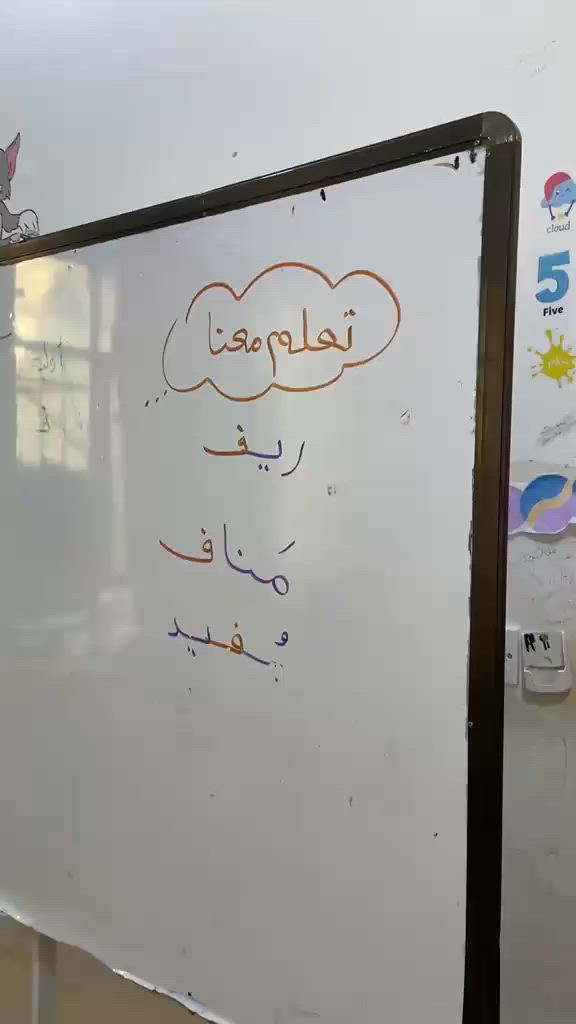 تعلم معنا
...
ريف
مَناف
يُفيد
cloud
5
Five